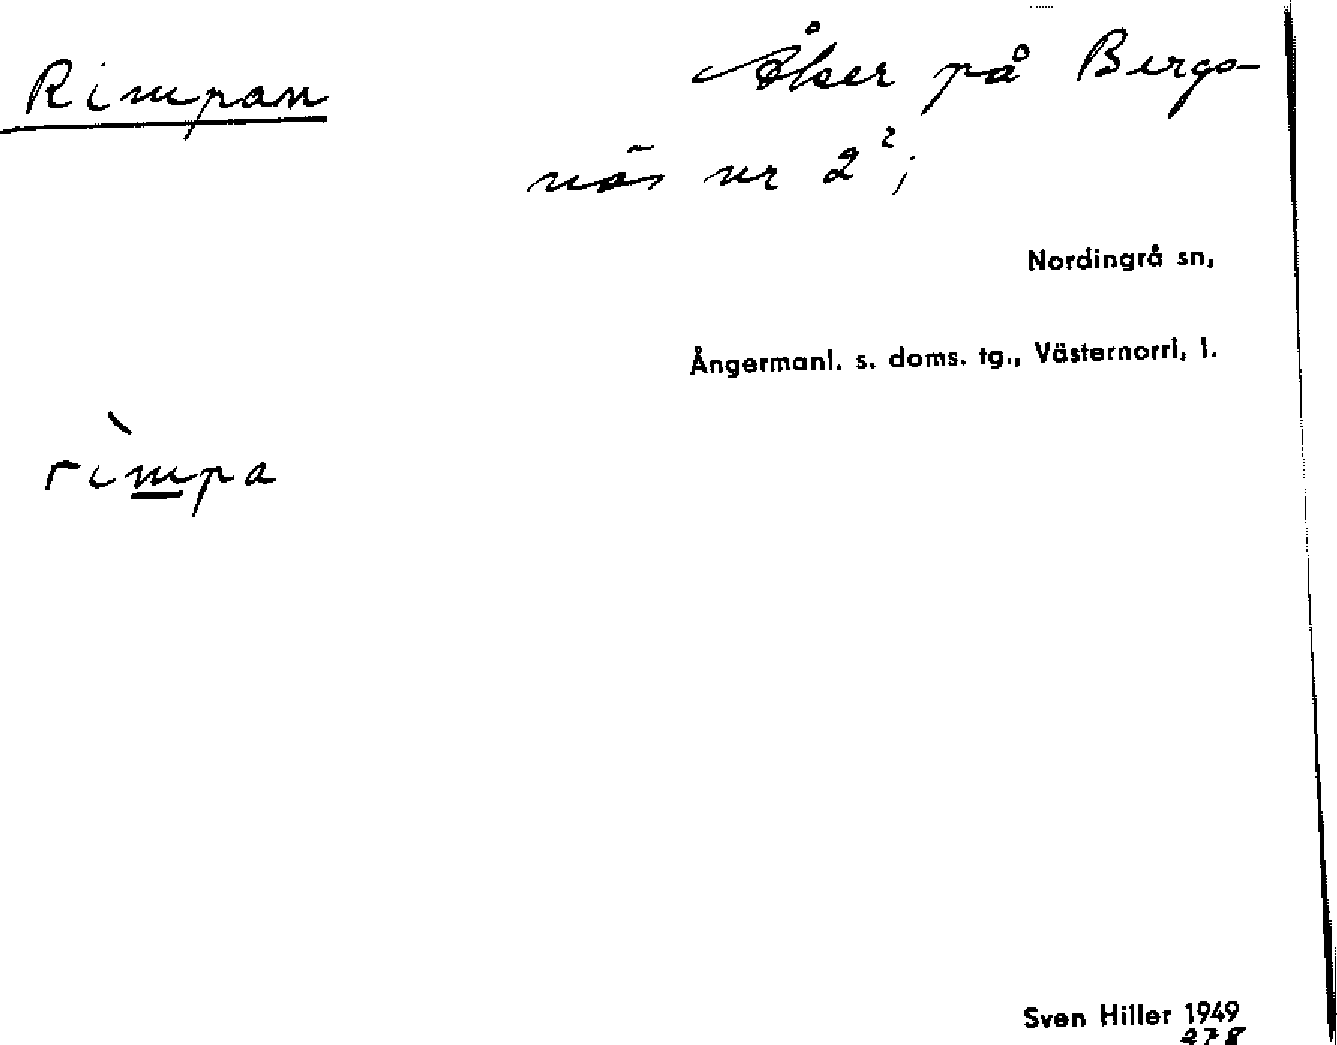 Rimpan
Åker på Bergs-
näs nr 2²;
Nordingrå sn,
Ångermanl. s. doms. tg., Västernorrl, l.
rìmpa
Sven Hiller 1949
278